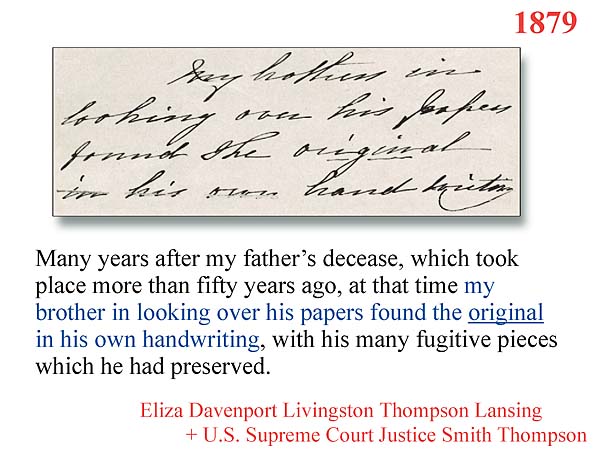 1879
My brother in
looking over his papers
found the original
in his own hand writing
Many years after my father’s decease, which took
place more than fifty years ago, at that time my
brother in looking over his papers found the original
in his own handwriting, with his many fugitive pieces
which he had preserved.
Eliza Davenport Livingston Thompson Lansing
+ U.S. Supreme Court Justice Smith Thompson